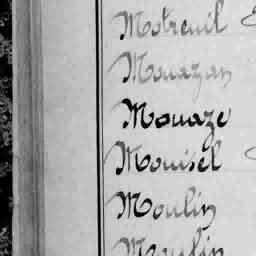 Motreuil
Mouazan
Mouaze
Mouisel
Moulin
Moulin